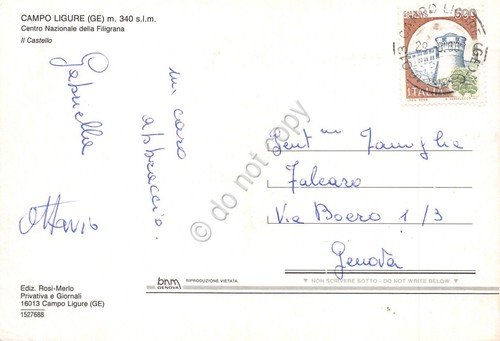 CAMPO LIGURE (GE) m. 340 s.l.m.
Centro Nazionale della Filigrana
Il Castello
Gabriella
Ottavio
un caro
abbraccio.
600
ITALIA
Gent.ma Famiglia
Falcaro
Via Boero 1/3
Genova
do not copy
bnm
GENOVA
RIPRODUZIONE VIETATA
NON SCRIVERE SOTTO - DO NOT WRITE BELOW
Ediz. Rosi-Merlo
Privativa e Giornali
16013 Campo Ligure (GE)
1527688